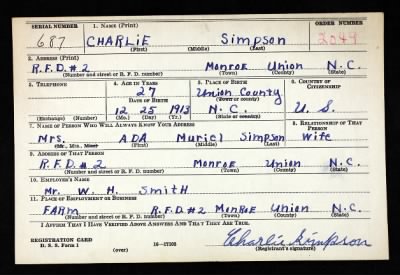 SERIAL NUMBER 1. NAME (Print) ORDER NUMBER
687 CHARLIE Simpson 2049
(First) (Middle) (Last)
2. ADDRESS (Print)
R.F.D. #2 Monroe Union N.C.
(Number and street or R. F. D. number) (Town) (County) (State)
3. TELEPHONE 4. AGE IN YEARS 5. PLACE OF BIRTH 6. COUNTRY OF CITIZENSHIP
27 Union County
DATE OF BIRTH (Town or county)
12 25 1913 N.C. U. S.
(Exchange) (Number) (Mo.) (Day) (Yr.) (State or country)
7. NAME OF PERSON WHO WILL ALWAYS KNOW YOUR ADDRESS 8. RELATIONSHIP OF THAT PERSON
Mrs. ADA Muriel Simpson Wife
(Mr., Mrs., Miss) (First) (Middle) (Last)
9. ADDRESS OF THAT PERSON
R.F.D. #2 Monroe Union N.C.
(Number and street or R. F. D. number) (Town) (County) (State)
10. EMPLOYER'S NAME
Mr. W. H. SmitH
11. PLACE OF EMPLOYMENT OR BUSINESS
FARM R.F.D. #2 MonRoE Union N.C.
(Number and street or R. F. D. number) (Town) (County) (State)
I AFFIRM THAT I HAVE VERIFIED ABOVE ANSWERS AND THAT THEY ARE TRUE.
REGISTRATION CARD
D. S. S. Form 1 (over) 16—17105 Charlie Simpson
(Registrant's signature)